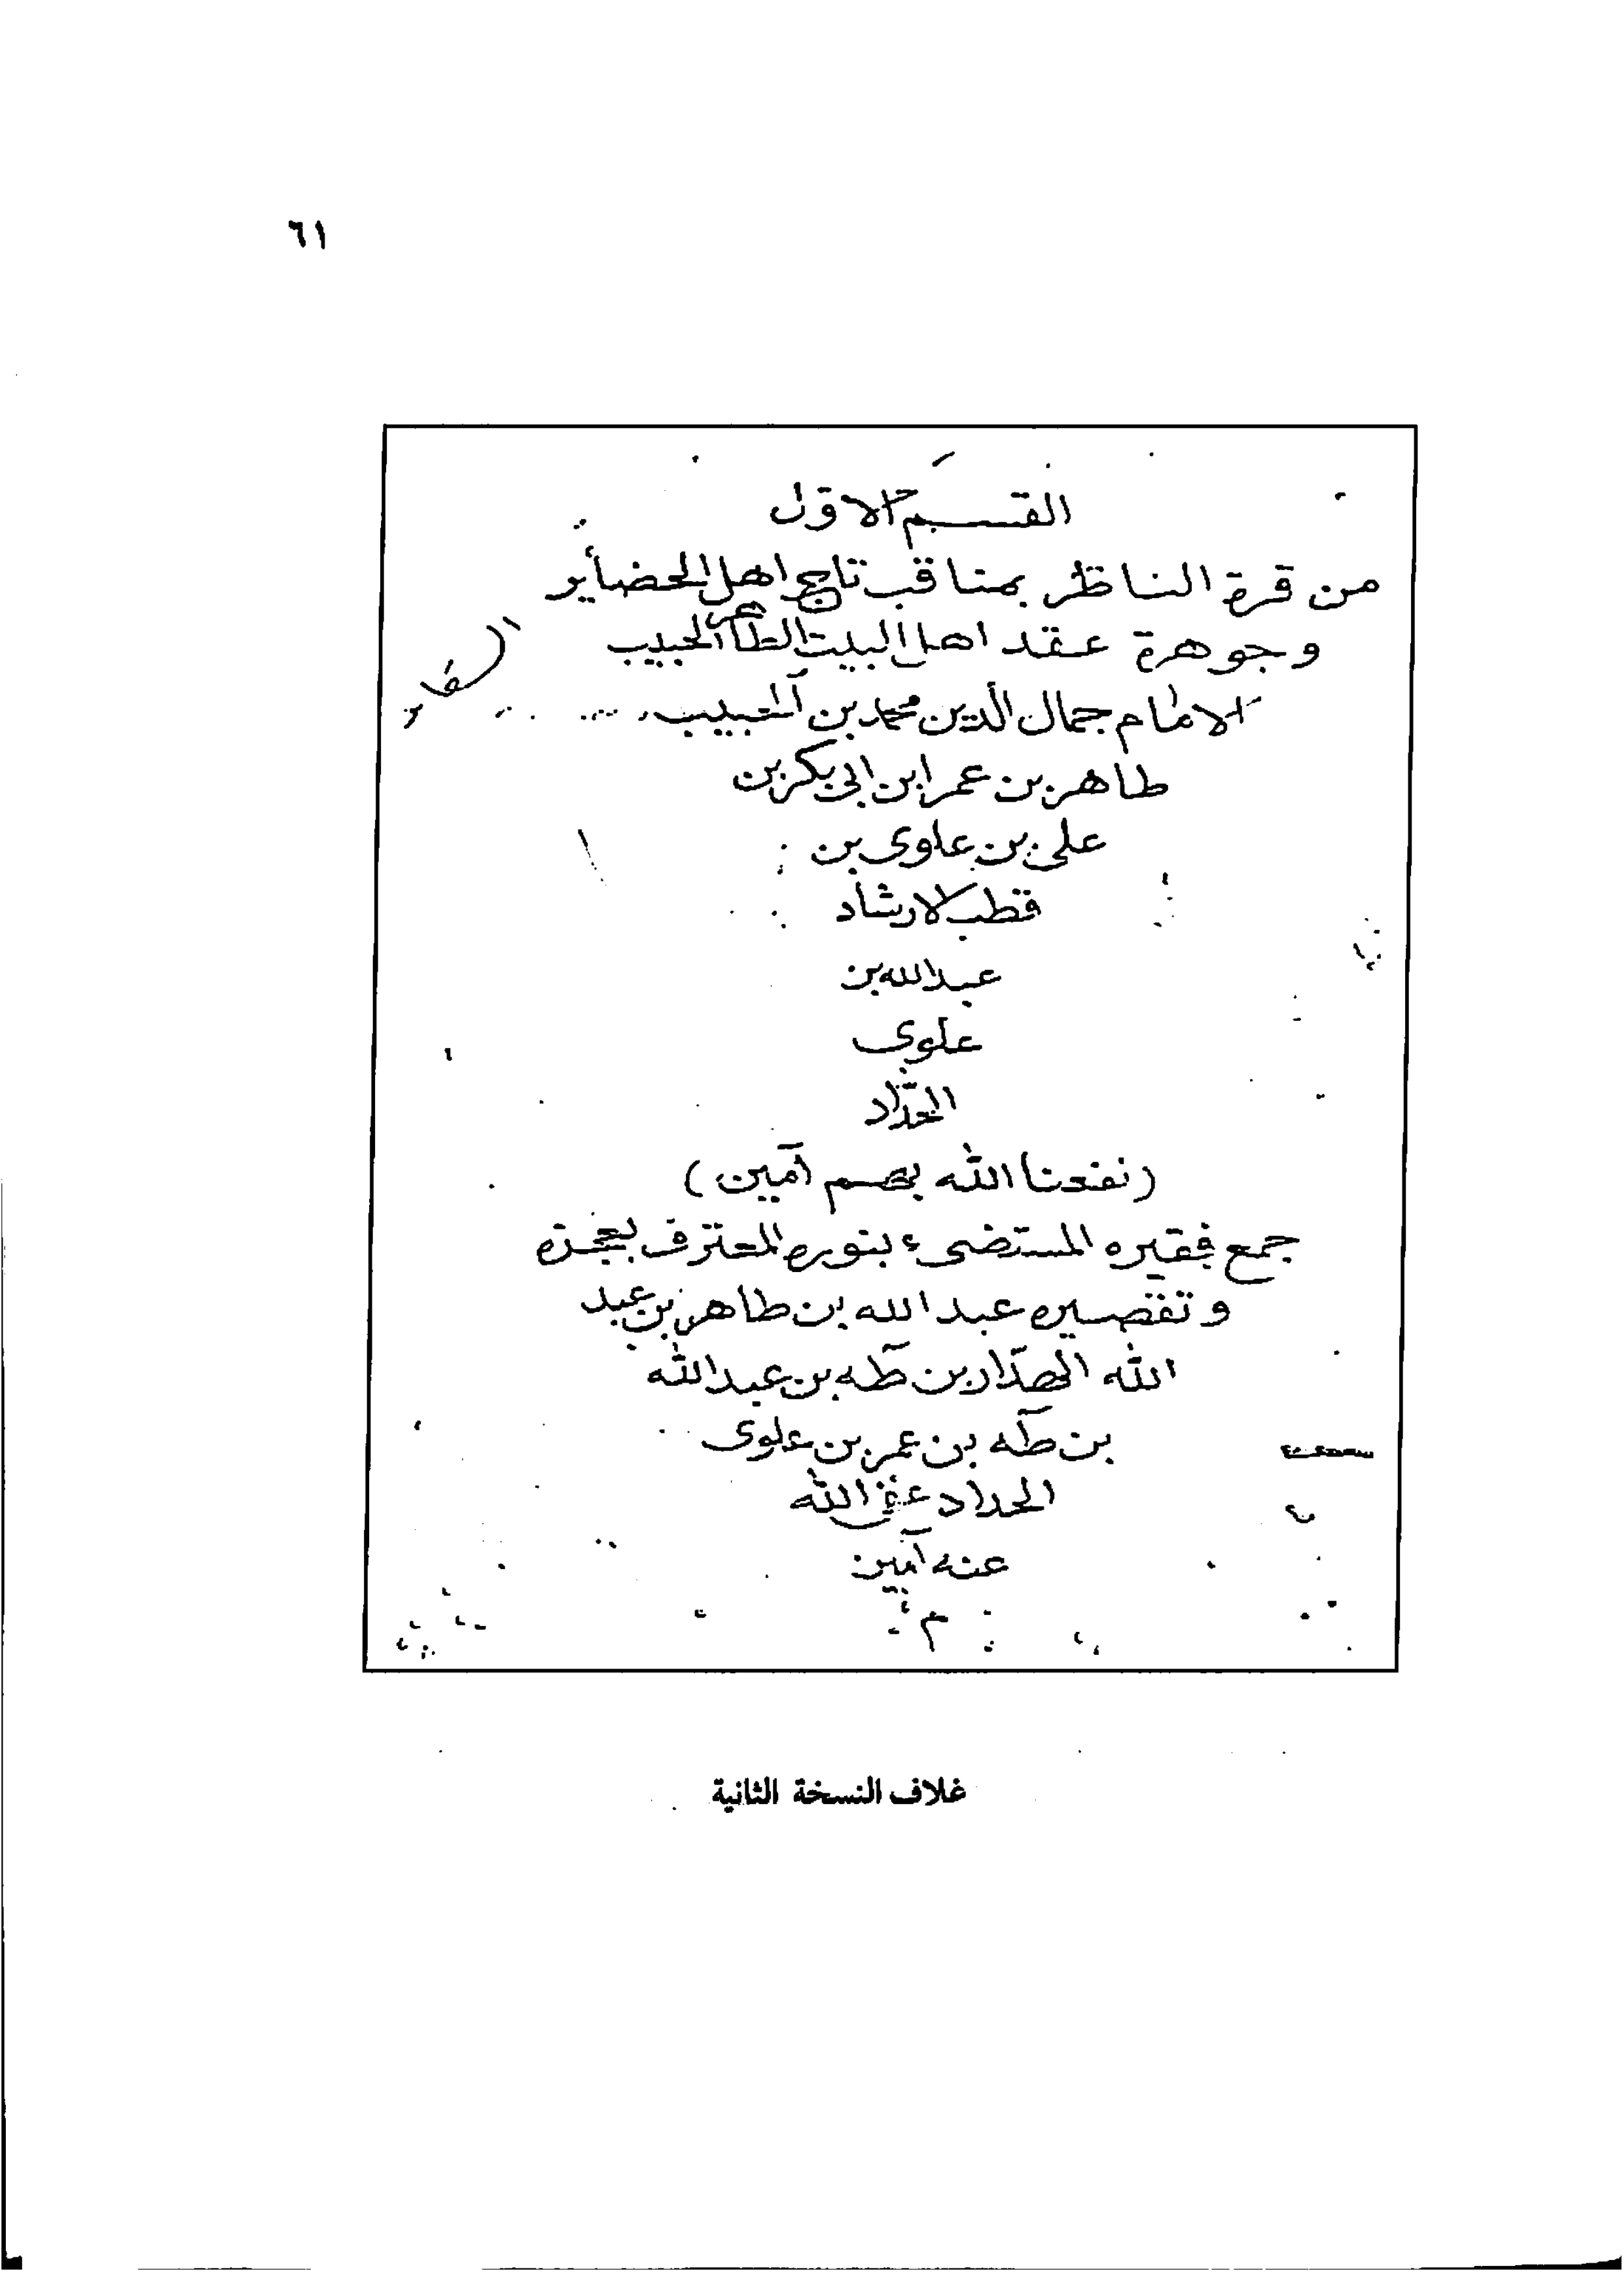 ٦١
القسم الاول
من قرة الناظر بمناقب تاج اهل الحضائر
وجوهرة عقد اهل البيت الطاهر الحبيب
الامام جمال الدين محمد بن الحبيب
طاهر بن عمر ابن ابي بكر بن
علي بن علوي بن
قطب الارشاد
عبدالله بن
علوي
الحدّاد
(نفعنا الله بهم آمين)
جمع فقيره المستضيء بنوره المعترف بعجزه
وتقصيره عبد الله بن طاهر بن عبد
الله الهدّار بن طٰه بن عبدالله
بن طٰه بن عمر بن علوي
الحداد عفى الله
عنه آمين
م
غلاف النسخة الثانية